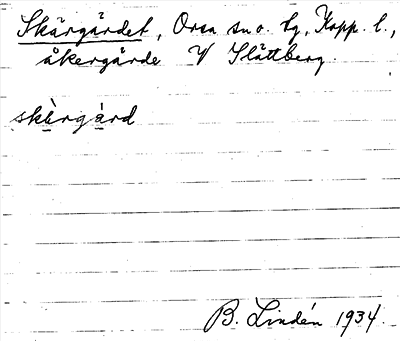 Skärgärdet, Orsa sn o. tg, Kopp. l.,
åkergärde V Slättberg.
skä̀rgàrd
B. Lindén 1934.